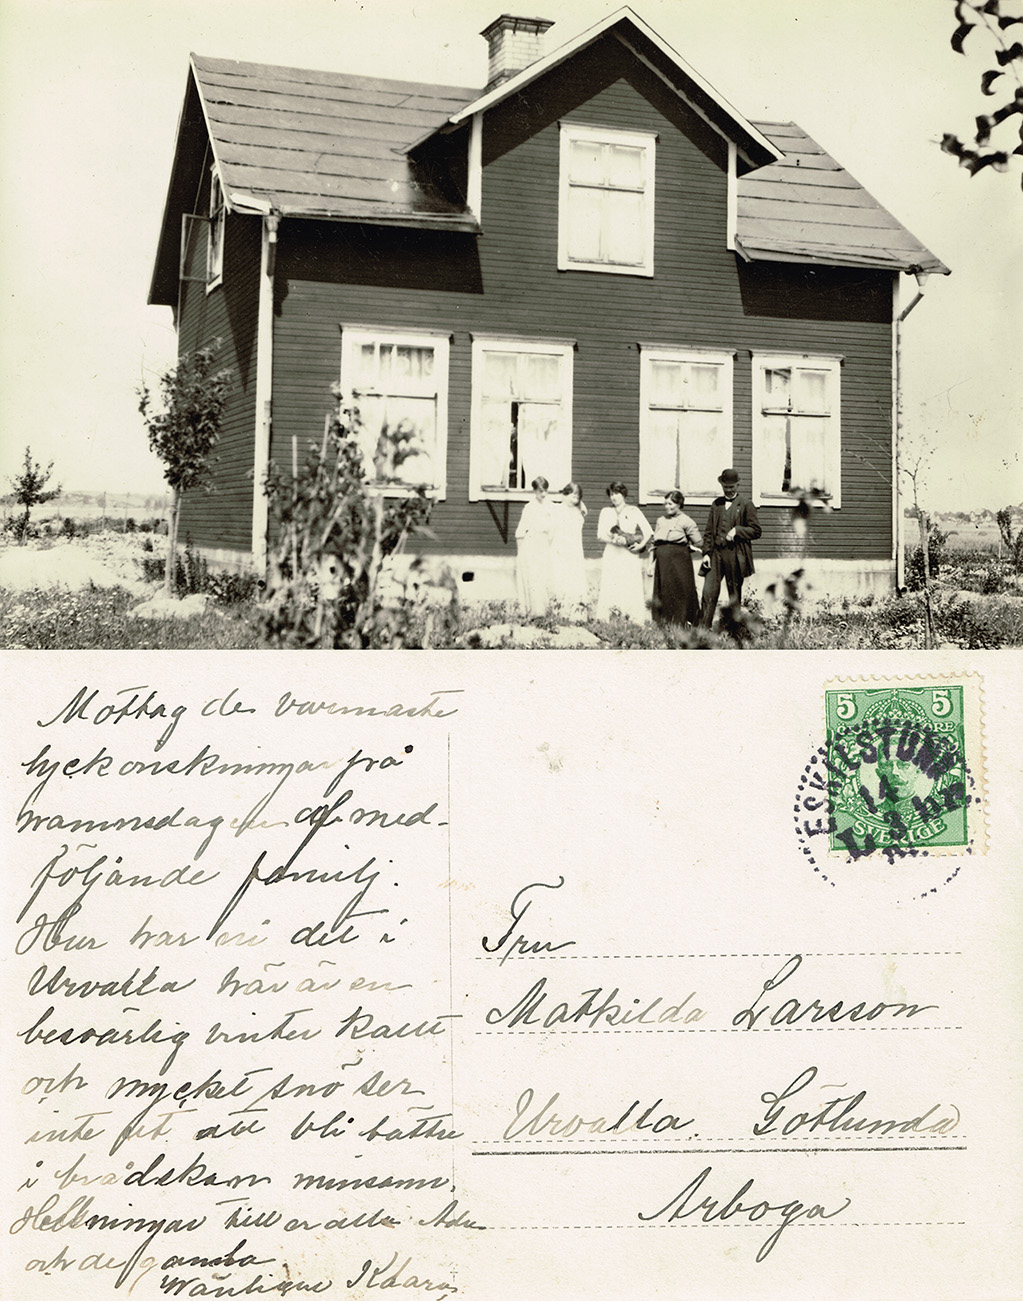 Mottag de varmaste
lyckonskningar på
namnsdagen af med-
följande familj.
Hur har ni det i
Urvalla här är en
besvärlig vinter kallt
och mycket snö ser
inte ut att bli bättre
i brådskan minsann.
Hellsningar till er alla
och de gamla
Wänligen Klara
5 5
ÖRE
SVERIGE
ESKILSTUNA
14
L 3
Fru
Mathilda Larsson
Urvalla. Götlunda
Arboga